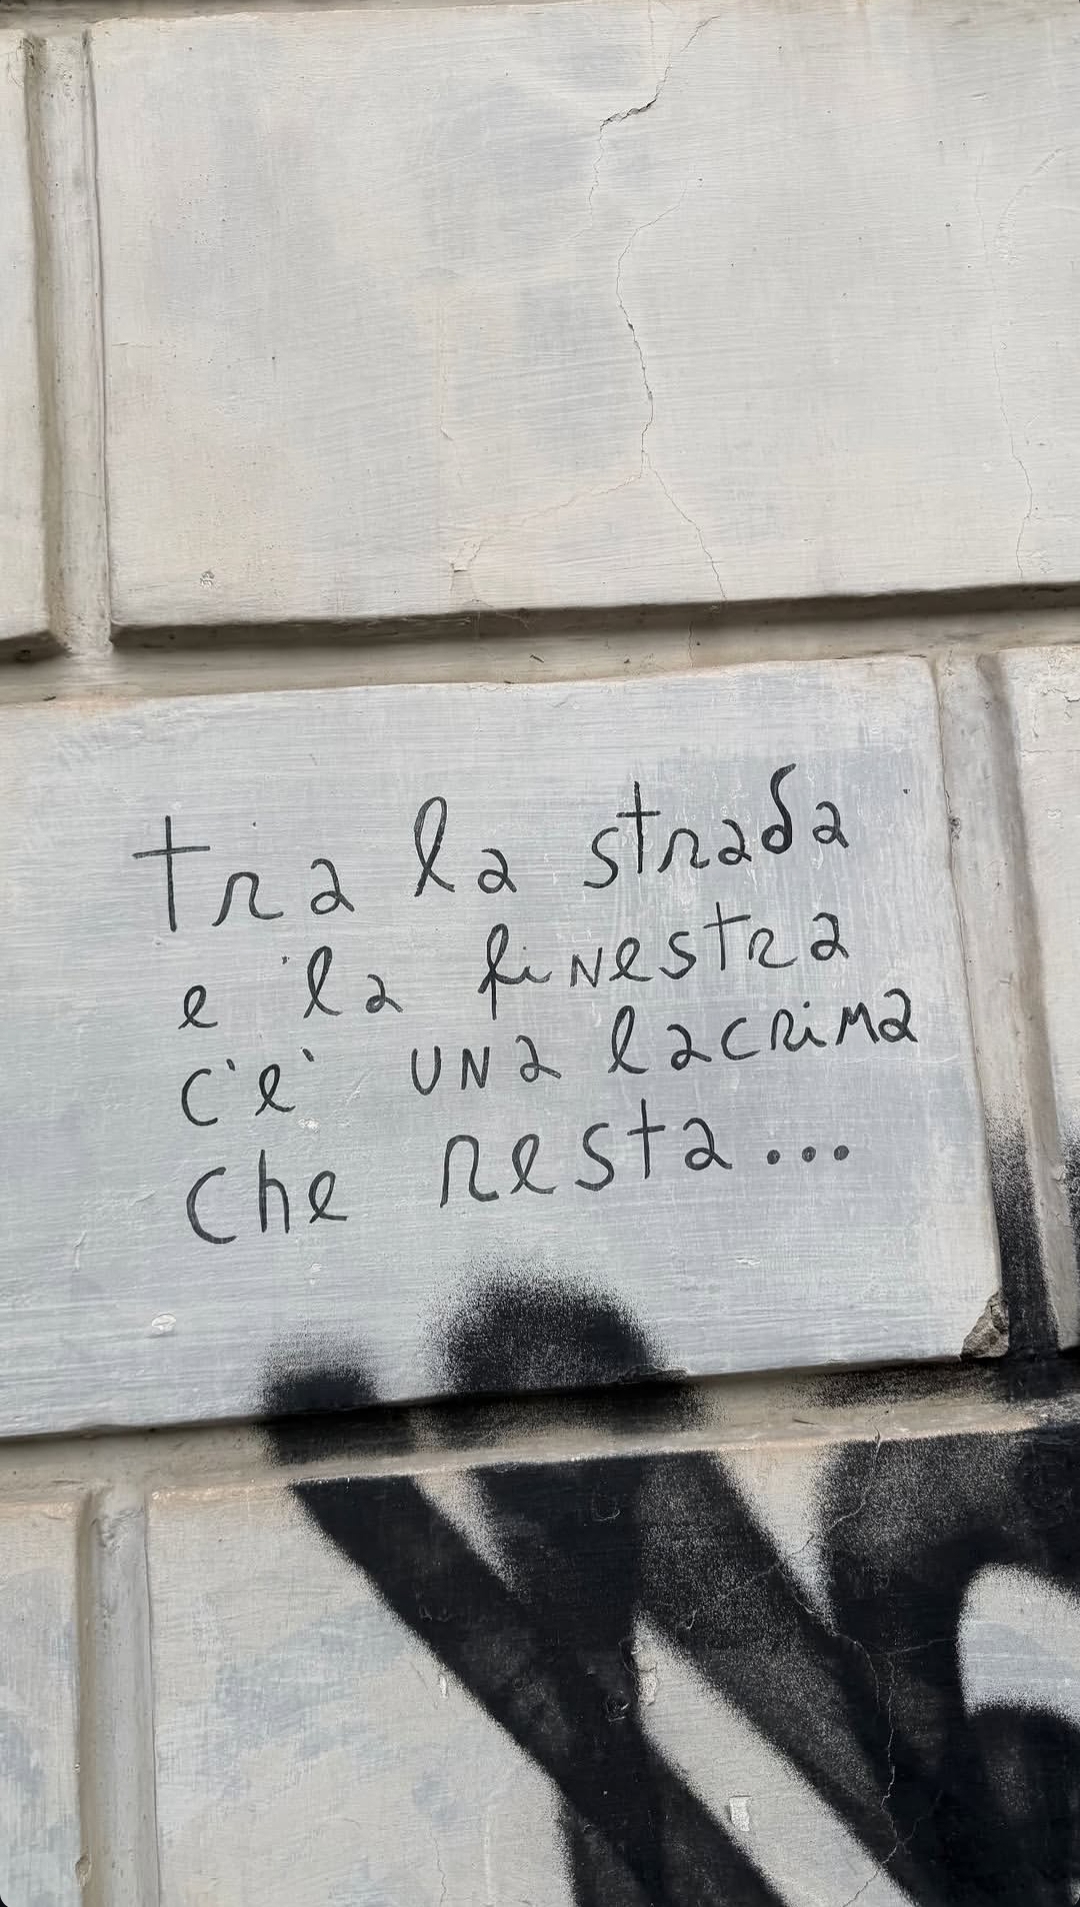 tra la strada
e la finestra
c'e' una lacrima
che resta...